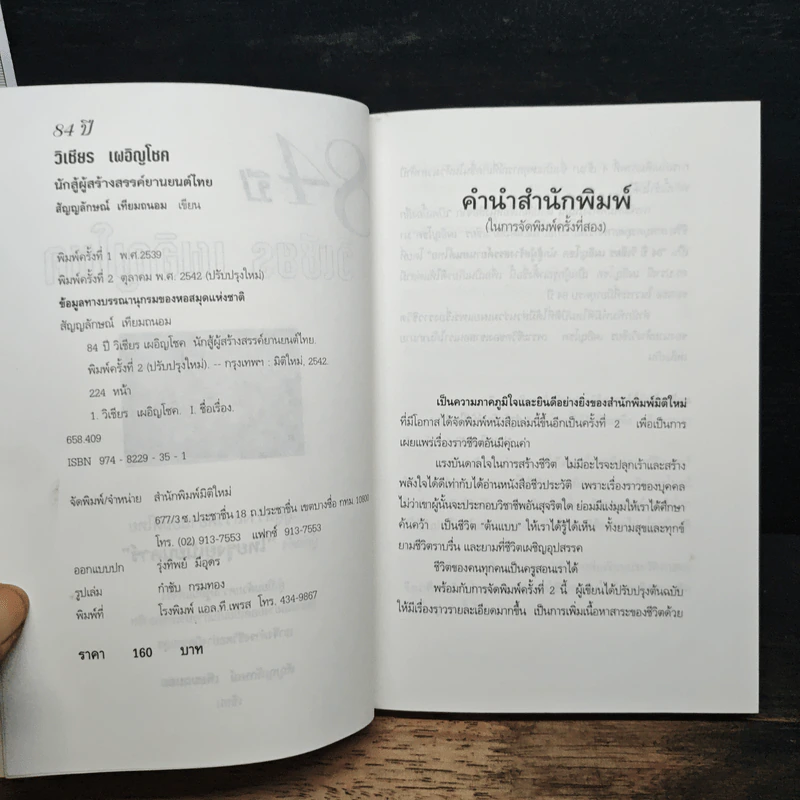 84 ปี
วิเชียร เผอิญโชค
นักสู้ผู้สร้างสรรค์ยานยนต์ไทย
สัญญลักษณ์ เทียมถนอม เขียน
พิมพ์ครั้งที่ 1 พ.ศ.2539
พิมพ์ครั้งที่ 2 ตุลาคม พ.ศ. 2542 (ปรับปรุงใหม่)
ข้อมูลทางบรรณานุกรมของหอสมุดแห่งชาติ
สัญญลักษณ์ เทียมถนอม
84 ปี วิเชียร เผอิญโชค นักสู้ผู้สร้างสรรค์ยานยนต์ไทย.
พิมพ์ครั้งที่ 2 (ปรับปรุงใหม่). -- กรุงเทพฯ : มิติใหม่, 2542.
224 หน้า
1. วิเชียร เผอิญโชค. I. ชื่อเรื่อง.
658.409
ISBN 974 - 8229 - 35 - 1
จัดพิมพ์/จำหน่าย สำนักพิมพ์มิติใหม่
677/3 ซ. ประชาชื่น 18 ถ.ประชาชื่น เขตบางซื่อ กทม 10800
โทร. (02) 913-7553 แฟกซ์ 913-7553
ออกแบบปก รุ่งทิพย์ มีอุดร
รูปเล่ม กำซับ กรมทอง
พิมพ์ที่ โรงพิมพ์ แอล.ที เพรส โทร. 434-9867
ราคา 160 บาท
คำนำสำนักพิมพ์
(ในการจัดพิมพ์ครั้งที่สอง)
เป็นความภาคภูมิใจและยินดีอย่างยิ่งของสำนักพิมพ์มิติใหม่
ที่มีโอกาสได้จัดพิมพ์หนังสือเล่มนี้ขึ้นอีกเป็นครั้งที่ 2 เพื่อเป็นการ
เผยแพร่เรื่องราวชีวิตอันมีคุณค่า
แรงบันดาลใจในการสร้างชีวิต ไม่มีอะไรจะปลุกเร้าและสร้าง
พลังใจได้ดีเท่ากับได้อ่านหนังสือชีวประวัติ เพราะเรื่องราวของบุคคล
ไม่ว่าเขาผู้นั้นจะประกอบวิชาชีพอันสุจริตใด ย่อมมีแง่มุมให้เราได้ศึกษา
ค้นคว้า เป็นชีวิต "ต้นแบบ" ให้เราได้รู้ได้เห็น ทั้งยามสุขและทุกข์
ยามชีวิตราบรื่น และยามที่ชีวิตเผชิญอุปสรรค
ชีวิตของคนทุกคนเป็นครูสอนเราได้
พร้อมกับการจัดพิมพ์ครั้งที่ 2 นี้ ผู้เขียนได้ปรับปรุงต้นฉบับ
ให้มีเรื่องราวรายละเอียดมากขึ้น เป็นการเพิ่มเนื้อหาสาระของชีวิตด้วย